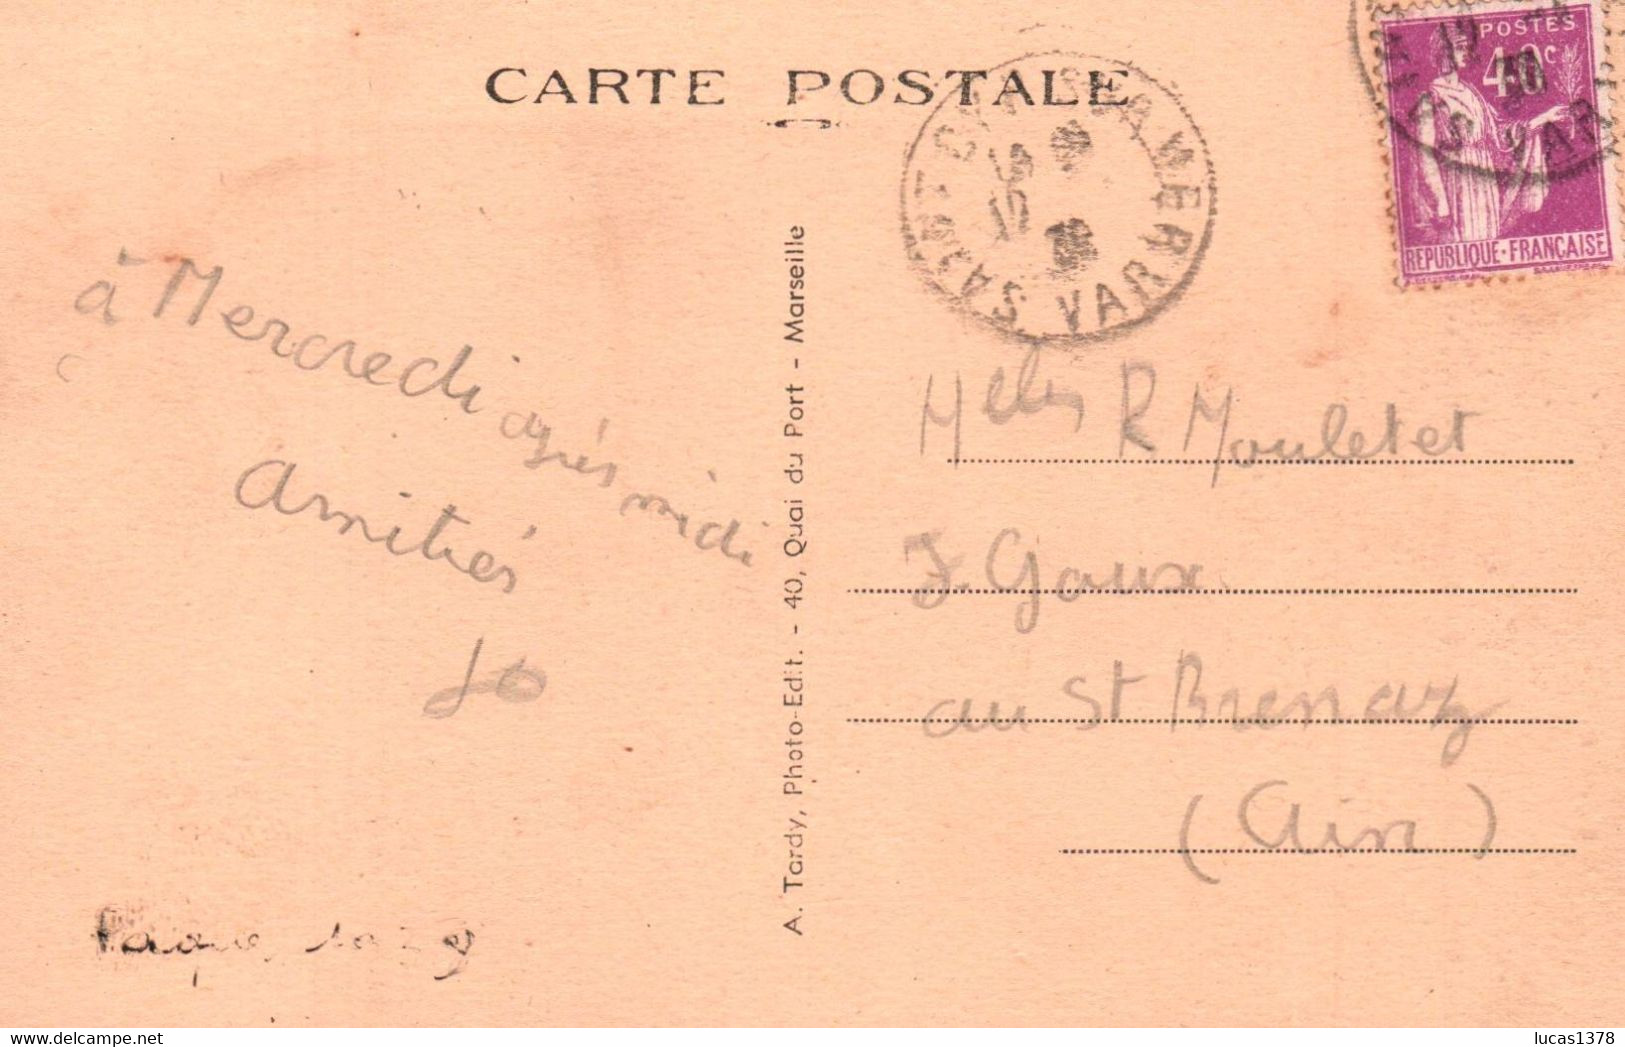 CARTE POSTALE
POSTES
40c
REPUBLIQUE · FRANÇAISE
SAINT CYR SUR MER
VAR
à Mercredi après midi
Amitiés
Jo
A. Tardy, Photo-Edit. - 40, Quai du Port - Marseille
R Mouletet
J. Goux
au St Brenaz
(Ain)
lucas1378